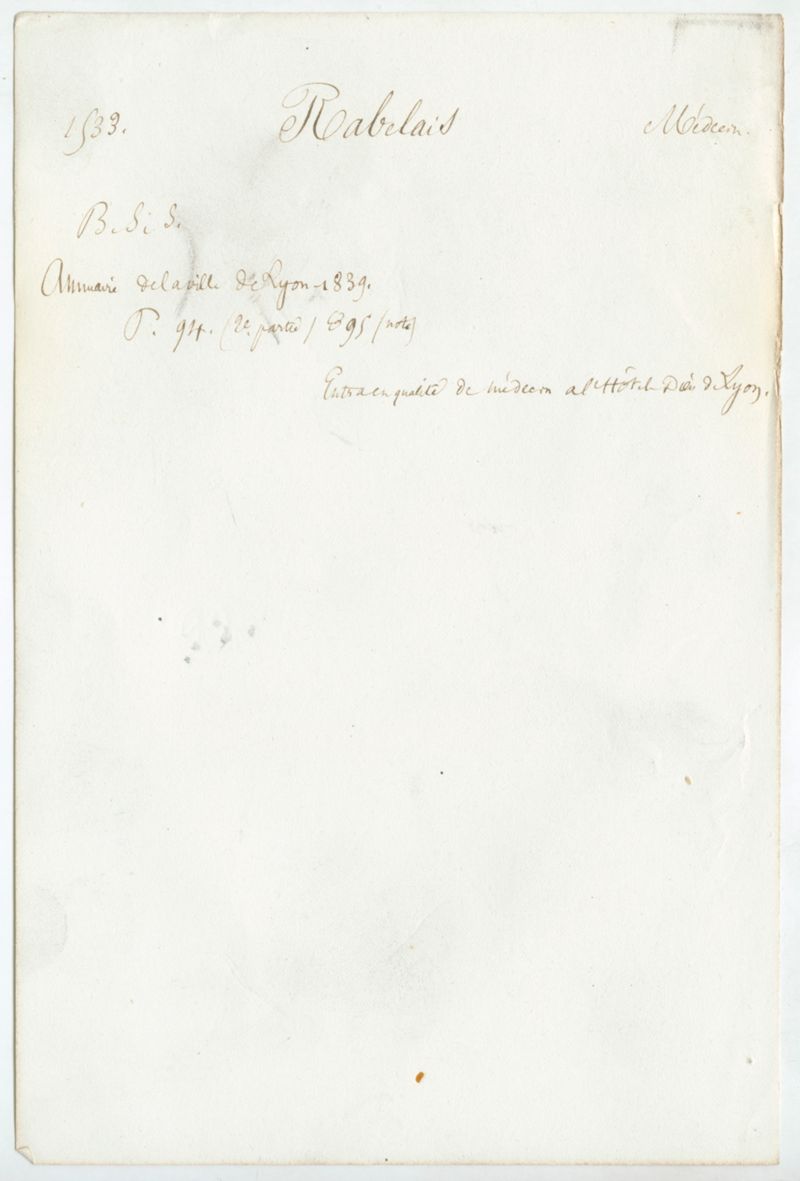 1533. Rabelais Médecin.
B. S. S.
Annuaire de la ville de Lyon - 1839.
P. 94. (2e. partie) & 95 (note)
Entra en qualité de médecin a l'Hôtel Dieu de Lyon.